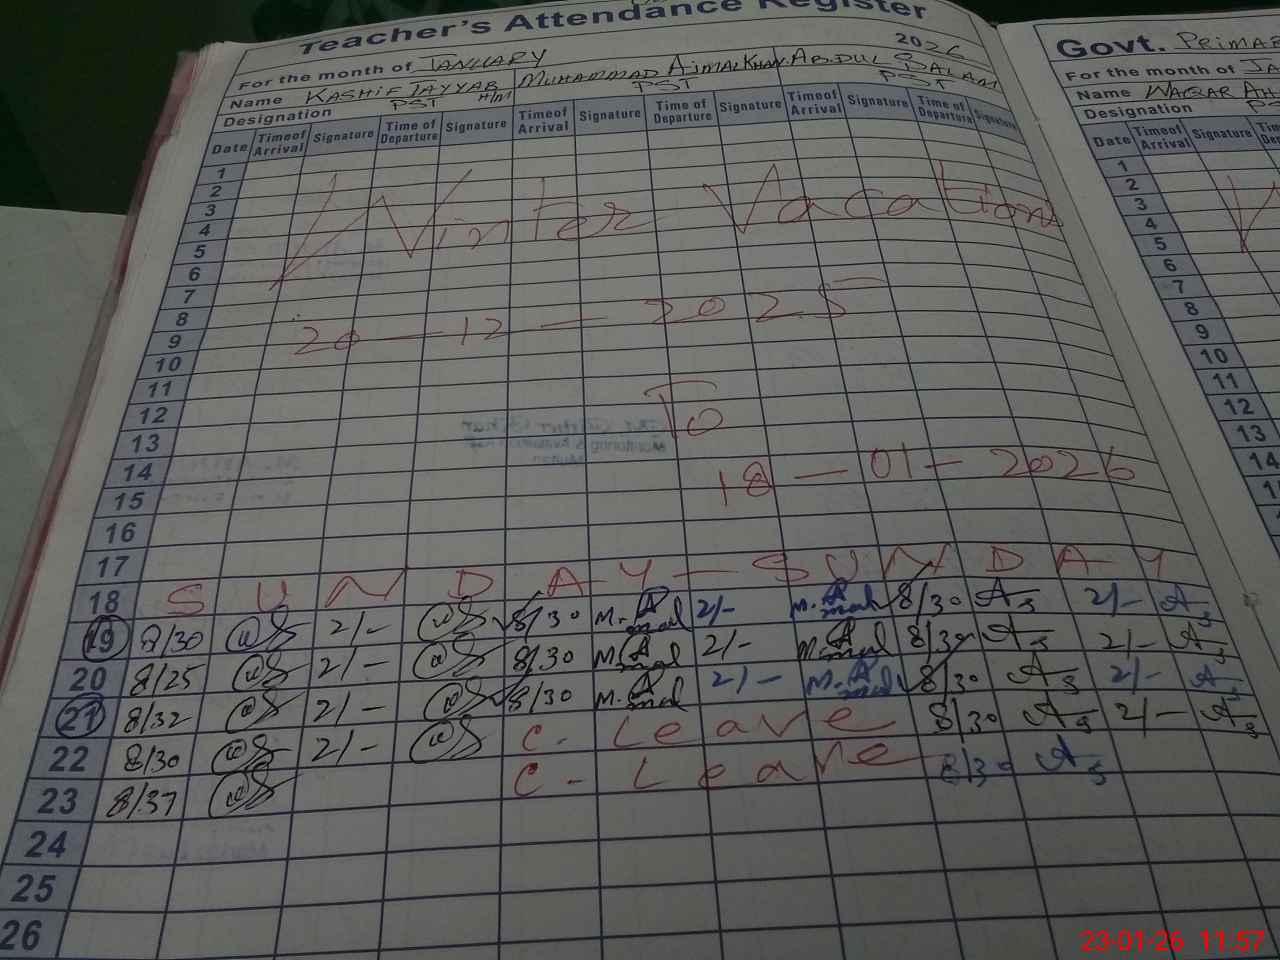 Teacher's Attendance Register
2026
For the month of JANUARY
Name KASHIF TAYYAB MUHAMMAD AJMAL KHAN ABDUL SALAM
Designation PST H/M PST PST
Date Time of Arrival Signature Time of Departure Signature Time of Arrival Signature Time of Departure Signature Time of Arrival Signature Time of Departure Signature
1
2
3
4
5
6
7
8
9
10
11
12
13
14
15
16
17
Winter Vacations
20-12-2025
To
18-01-2026
18 SUNDAY-SUNDAY
19 7/30 2/- 8/30 2/- 8/30 2/-
20 8/25 2/- 8/30 2/- 8/30 2/-
21 8/32 2/- 8/30 2/- 8/30 2/-
22 8/30 2/- C-Leave 8/30 2/-
23 8/37 C-Leave 8/30
24
25
26
Govt.
For the month of JA
Name WAQAR AH
Designation
Date Time of Arrival Signature
1
2
3
4
5
6
7
8
9
10
11
12
13
14
23-01-26 11:57